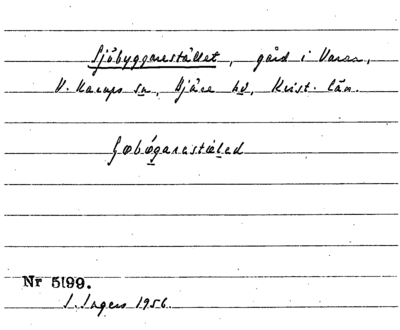 Sjöbyggarestället, gård i Varan,
V. Karups sn, Bjäre hd, Krist. län.
Nr 5199.
S. Ingers 1956.